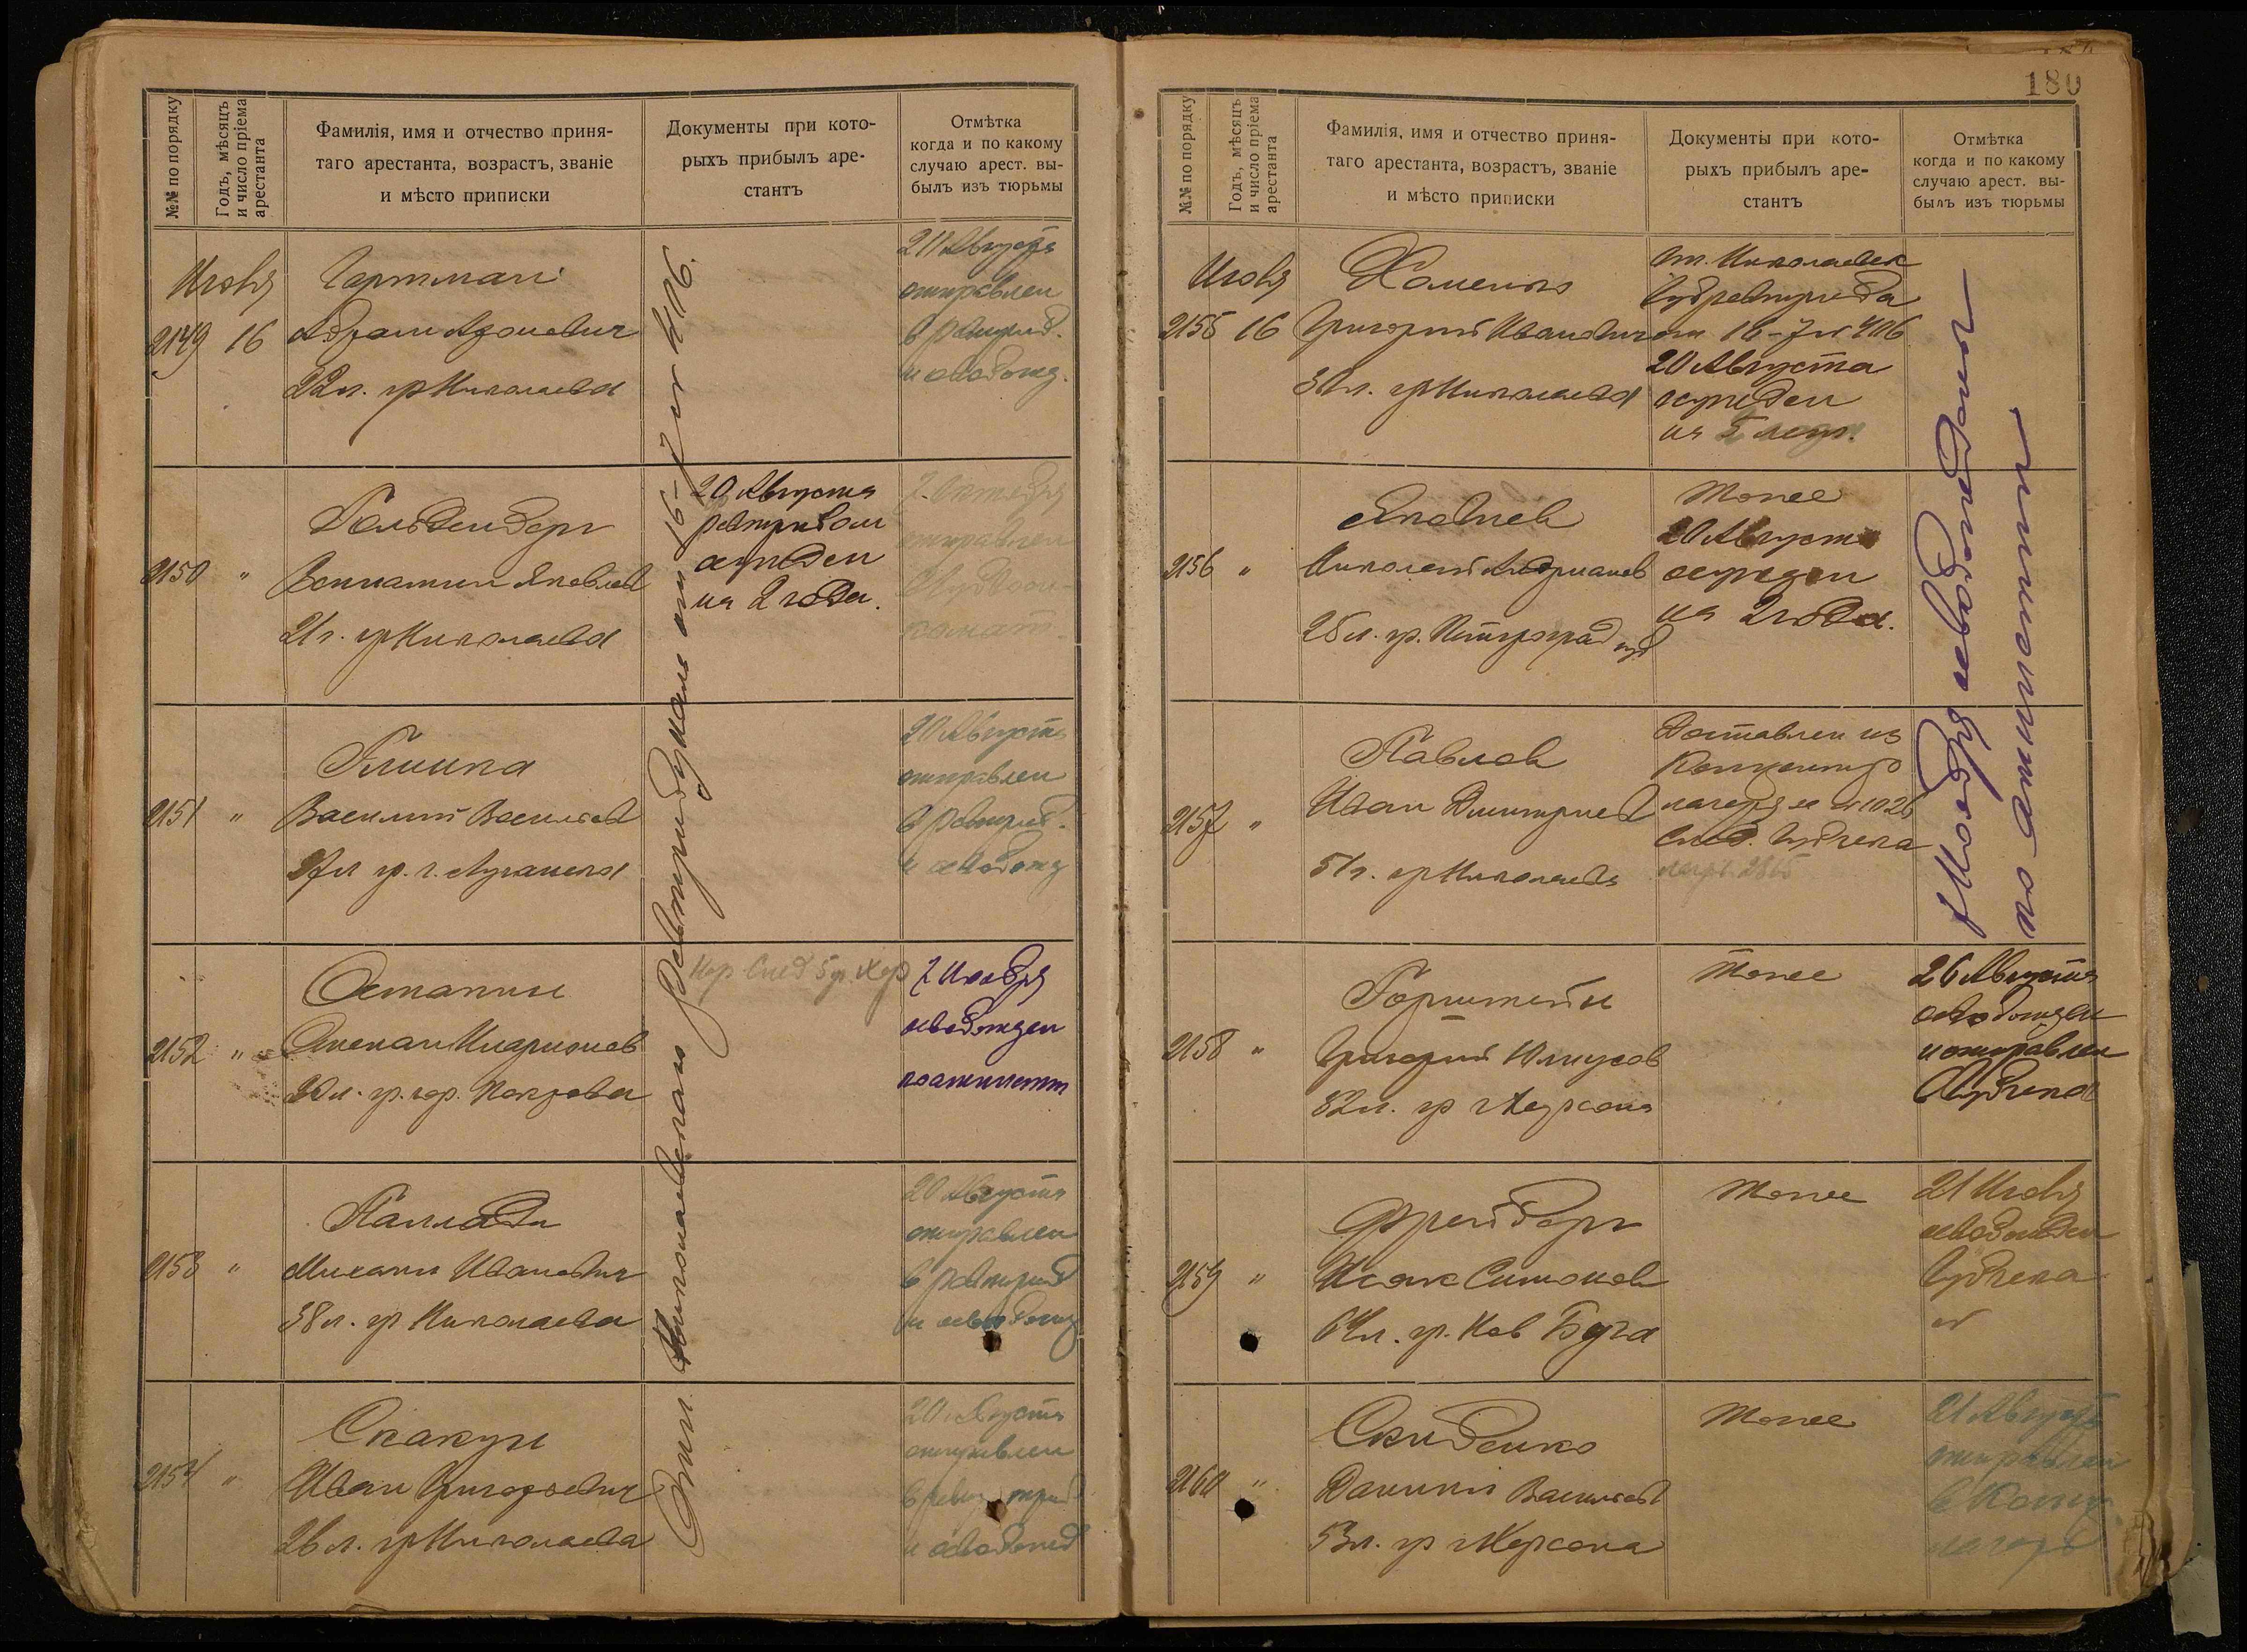 №№ по порядку
Годъ, мѣсяцъ
и число пріема
арестанта
Фамилія, имя и отчество приня-
таго арестанта, возрастъ, званіе
и мѣсто приписки
Документы при кото-
рыхъ прибылъ аре-
стантъ
Отмѣтка
когда и по какому
случаю арест. вы-
былъ изъ тюрьмы
Июля
2149 16
Гартман
Абрам
22 л. гр Николаева
21 Августа
отправлен
в Ревтриб.
и освобожд.
2150 "
Гольденберг
Вениамин Яковлев
21 г. гр Николаева
20 Августа
ревтрибом
осужден
на 2 года.
7 Октября
отправлен
2151 "
Глинка
Василий Васильев
27 л гр. г. Луганска
20 Августа
отправлен
в Ревтриб.
и освобожд
2152 "
Останин
Степан Иларионов
20 л. гр. гор.
7 Ноября
освобожден
по амнистии
2153 "
Паллади
Михаил Иванович
38 л. гр Николаева
20 Августа
отправлен
в Ревтриб
и освобожд
2154 "
Скакун
Иван Григорьевич
26 л. гр Николаева
20 Августа
отправлен
в ревтриб
и освобожд
При Николаевском Ревтрибунале от 16-7 № 4106.
180
№№ по порядку
Годъ, мѣсяцъ
и число пріема
арестанта
Фамилія, имя и отчество приня-
таго арестанта, возрастъ, званіе
и мѣсто приписки
Документы при кото-
рыхъ прибылъ аре-
стантъ
Отмѣтка
когда и по какому
случаю арест. вы-
былъ изъ тюрьмы
Июля
2155 16
Хоменко
Григорий Иванович
гр Николаева
Николаевск
Губревтриба
от 16-7 № 4106
20 Августа
осужден
на 5 лет.
2156 "
Яковлев
Николай Андрианов
25 л. гр. Петроград губ
Тоже
20 Августа
осужден
на 2 года.
2157 "
Павлов
Иван Дмитриев
51 г. гр Николаева
Доставлен из
Концентр
лагеря № 1026
След. Губчека
7 Ноября освобожден
по амнистии
2158 "
Горнштейн
Григорий Юлиусов
32 л. гр г Херсона
Тоже
26 Августа
освобожден
и отправлен
в Губчека
2159 "
Фрейберг
Исаак Симонов
64 л. гр. Нов Буга
Тоже
21 Июля
освобожден
Губчека
№
2160 "
Скиденко
Даниил Васильев
53 л. гр г Херсона
Тоже
21 Августа
отправлен
в Конц.
лагерь